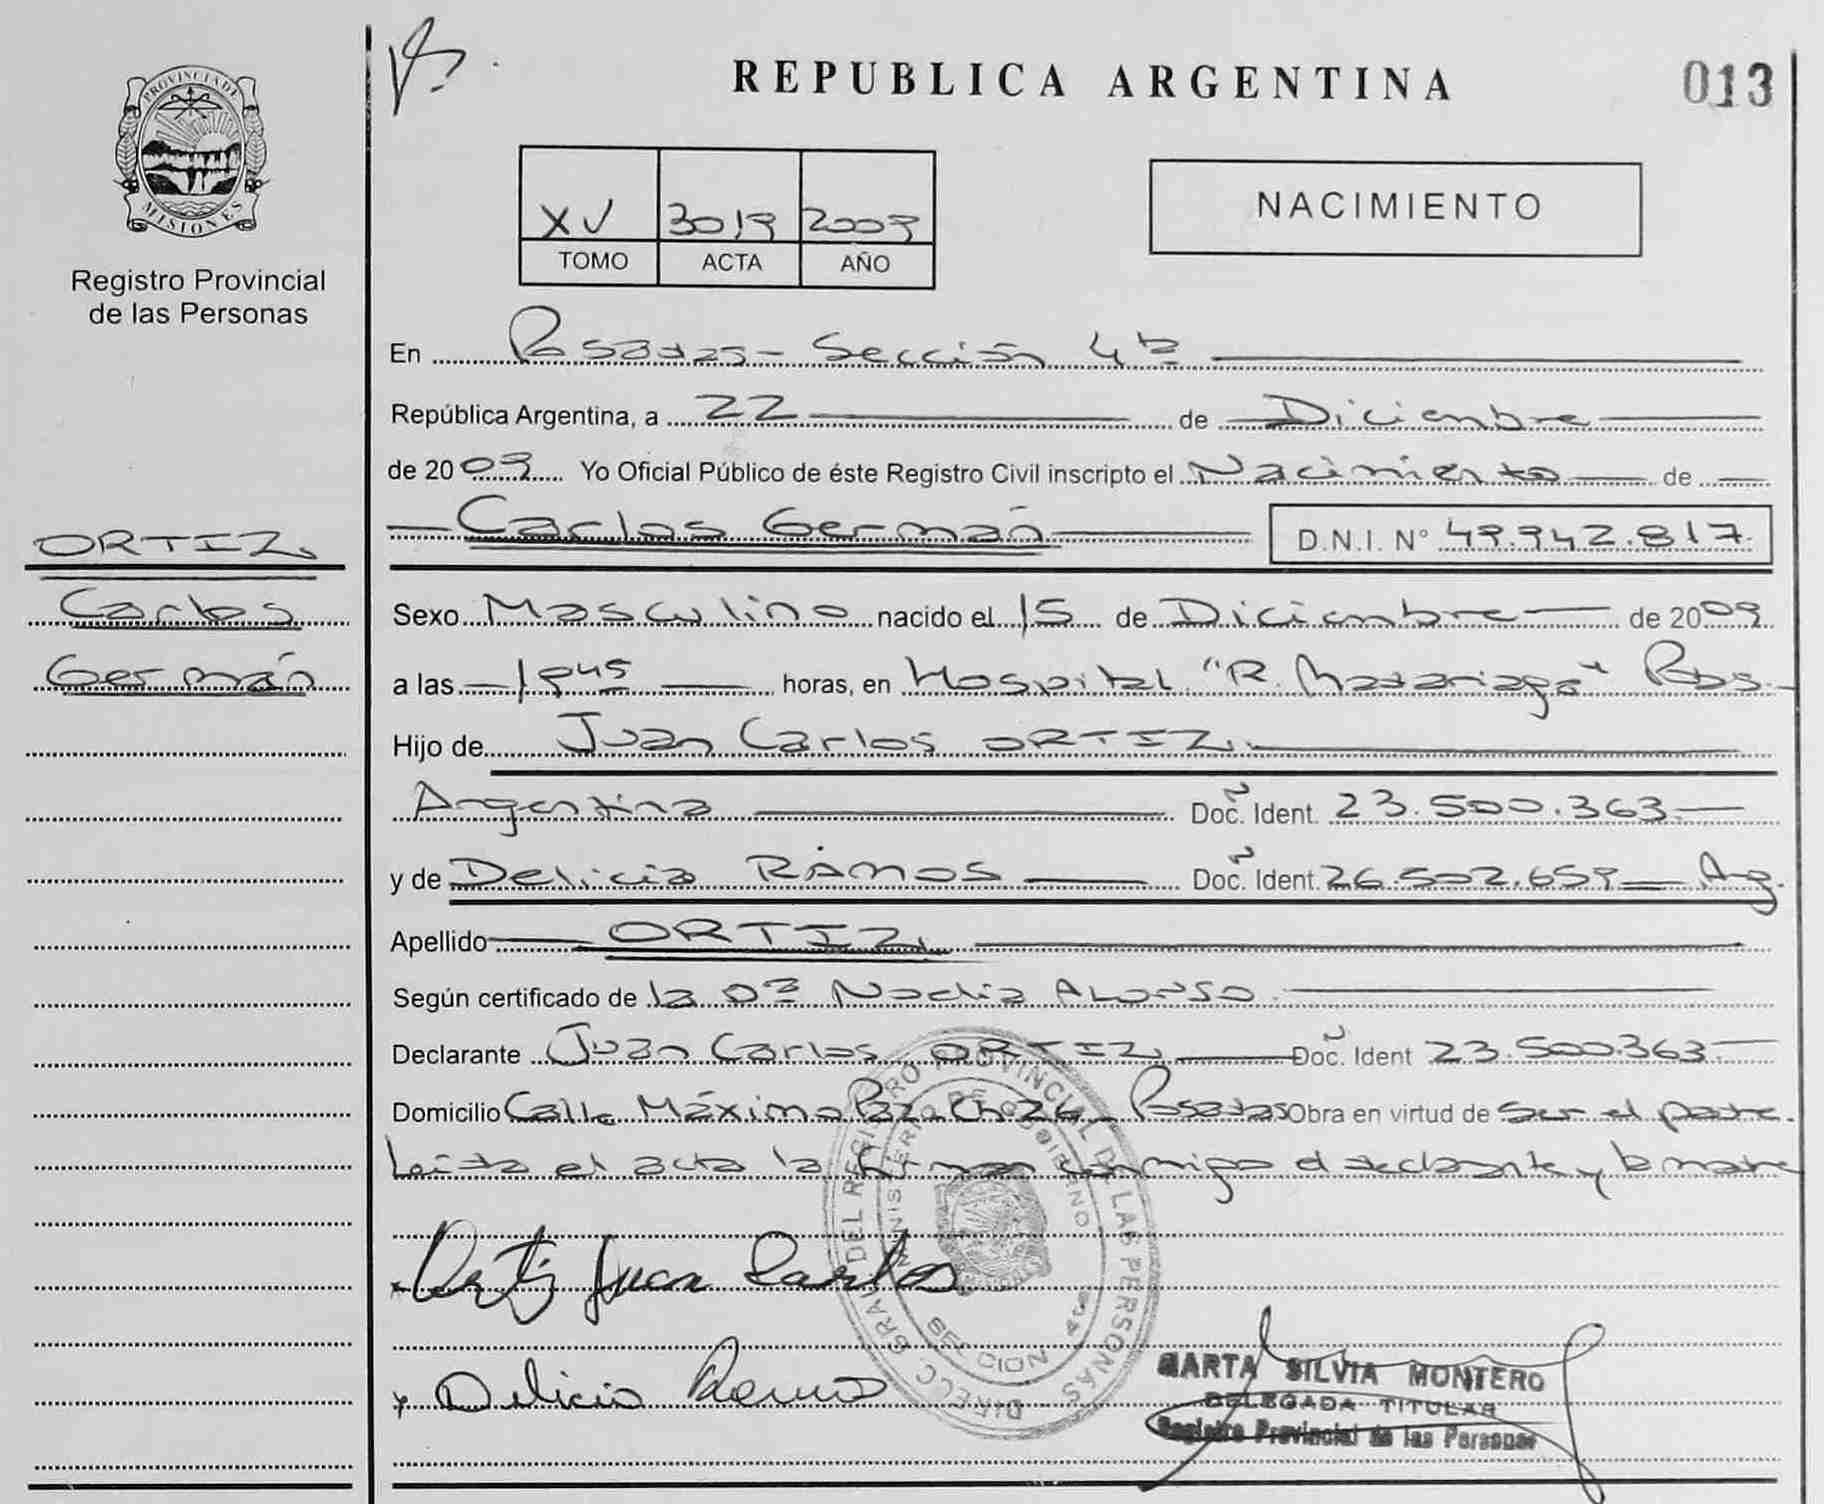 013
REPUBLICA ARGENTINA
PROVINCIA DE
MISIONES
Registro Provincial
de las Personas
XV 3019 2009
TOMO ACTA AÑO
NACIMIENTO
En Posadas - Sección 4ta
República Argentina, a 22 de Diciembre
de 2009 Yo Oficial Público de éste Registro Civil inscripto el Nacimiento de
Carlos Germán D.N.I. N° 49.942.817.
ORTIZ
Carlos
Germán
Sexo Masculino nacido el 15 de Diciembre de 2009
a las horas, en Hospital "R. Madariaga" Pdas.
Hijo de Juan Carlos ORTIZ
Argentina Doc. Ident. 23.500.363
y de Delicia RAMOS Doc. Ident. 26.502.659 Arg.
Apellido ORTIZ
Según certificado de la Dra Nadia ALONSO
Declarante Juan Carlos ORTIZ Doc. Ident 23.500.363
Domicilio Calle Máximo Paz Ch 26 Posadas Obra en virtud de ser el padre.
Leída el acta la firman conmigo el declarante y la madre
Ortiz Juan Carlos
Delicia Ramos
DIRECC GRAL DEL REGISTRO PROVINCIAL DE LAS PERSONAS
MINISTERIO DE GOBIERNO
SECCION 4ta
MARTA SILVIA MONTERO
DELEGADA TITULAR
Registro Provincial de las Personas